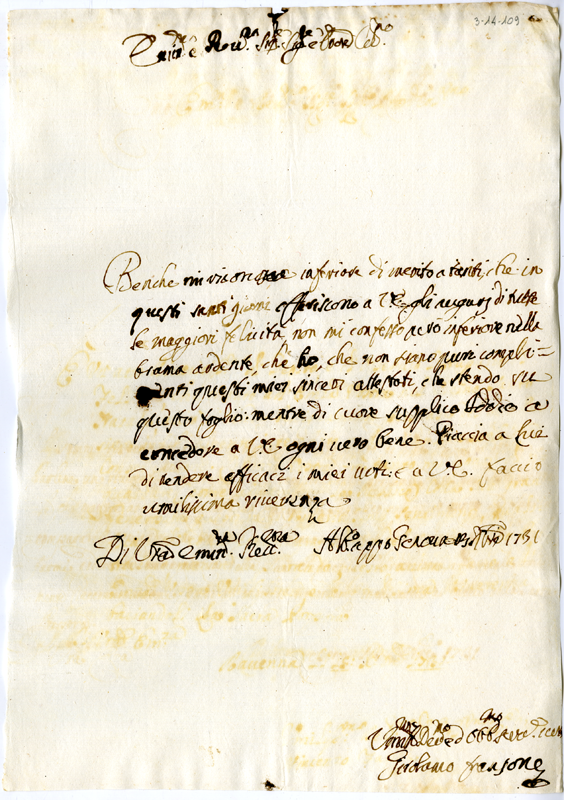 3-14-109
Benche mi riconosca inferiore di merito a tanti, che in
questi santi giorni offeriscono a V.E. gli augurj di tutte
le maggiori felicità, non mi confesso però inferiore nella
brama ardente, che ho, che non siano puri compli=
menti questi miei sinceri attestati, che stendo su
questo foglio: mentre di cuore supplico Iddio a
concedere a V.E. ogni vero bene. Piaccia a Lui
di rendere efficaci i miei voti: e a V.E. faccio
umilissima riverenza
Di V. Emin. Rev. Genova 1731
Girolamo Fransone